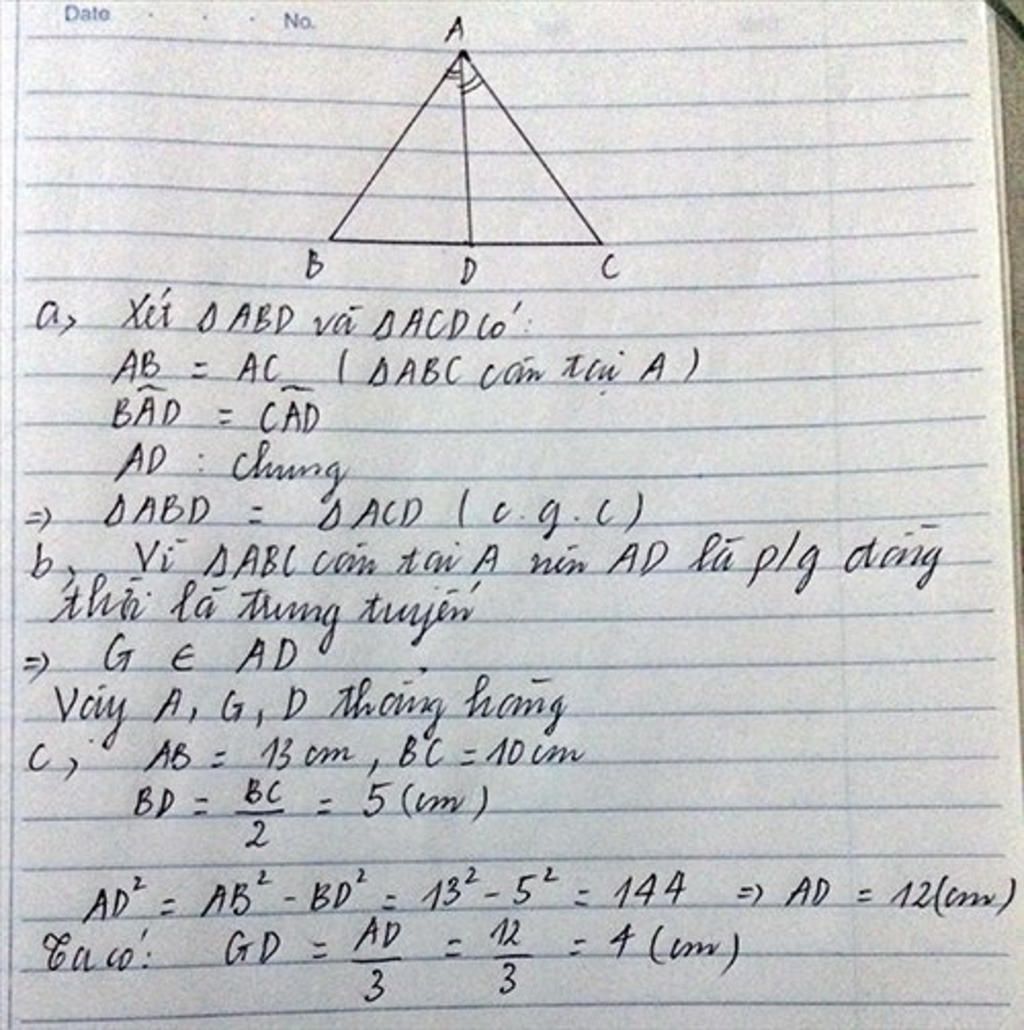 Date . . . No.
A
B D C
a, Xét ΔABD và ΔACD có:
AB = AC (ΔABC cân tại A)
BÂD = CÂD
AD : chung
=> ΔABD = ΔACD (c.g.c)
b, Vì ΔABC cân tại A nên AD là p/g đồng
thời là trung tuyến
=> G ∈ AD
Vậy A, G, D thẳng hàng
c, AB = 13 cm, BC = 10 cm
BD = BC/2 = 5 (cm)
AD² = AB² - BD² = 13² - 5² = 144 => AD = 12 (cm)
Ta có: GD = AD/3 = 12/3 = 4 (cm)